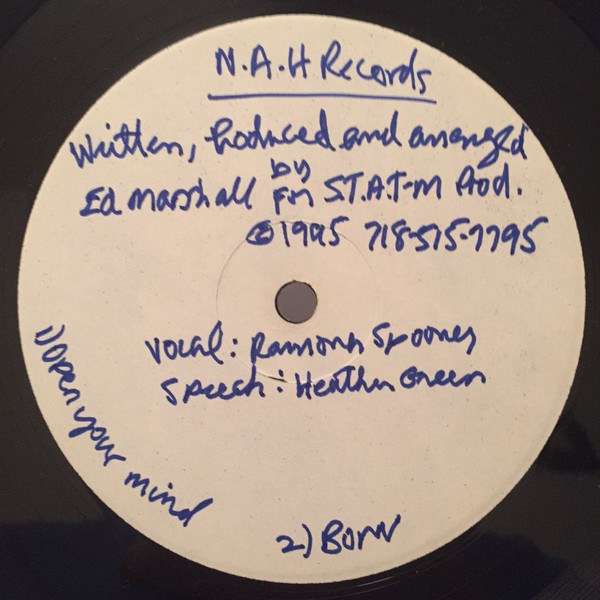 N.A.H Records
Written, Produced and arranged
by
Ed Marshall For S.T.A.T-M Prod.
©1995 718-515-7795
Vocal: Ramona Spooney
Speech: Heather Green
1) Open your mind
2) Born